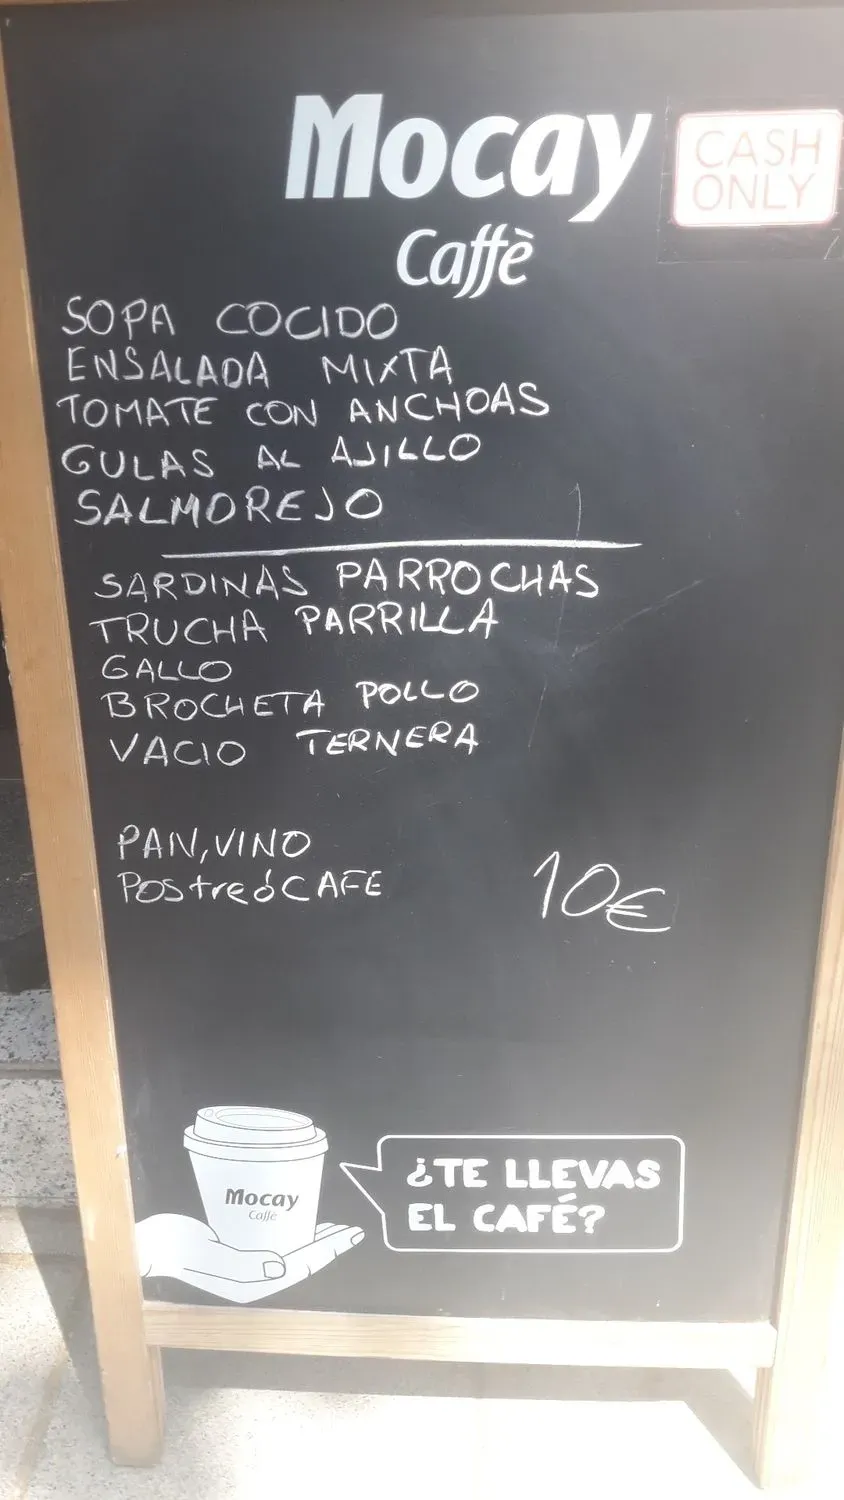 Mocay
Caffè
CASH
ONLY
SOPA COCIDO
ENSALADA MIXTA
TOMATE CON ANCHOAS
GULAS AL AJILLO
SALMOREJO
SARDINAS PARROCHAS
TRUCHA PARRILLA
GALLO
BROCHETA POLLO
VACIO TERNERA
PAN, VINO
POStre ó CAFE
10€
Mocay
Caffè
¿TE LLEVAS
EL CAFÉ?